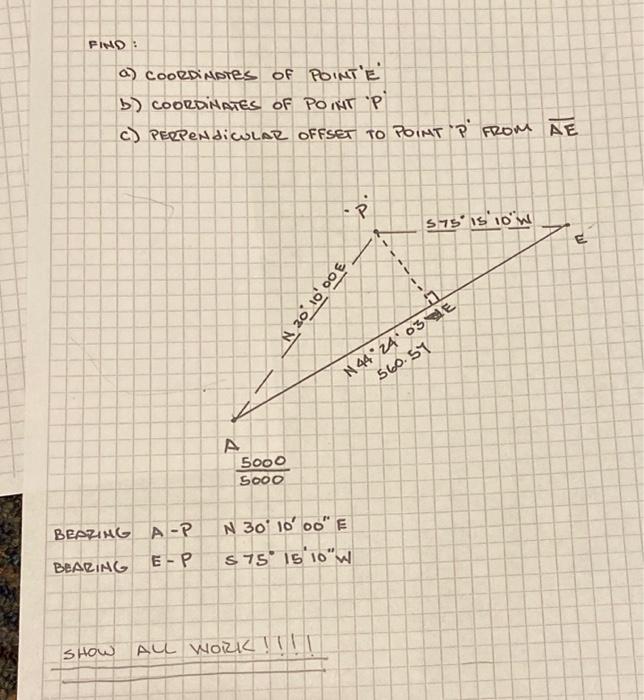 FIND :
a) COORDINATES OF POINT 'E'
b) COORDINATES OF POINT 'P'
c) PERPENDICULAR OFFSET TO POINT 'P' FROM AE
'P'
S 75° 15' 10" W
E
N 30° 10' 00" E
N 44° 24' 03" E
560.57
A
5000
5000
BEARING A-P N 30° 10' 00" E
BEARING E-P S 75° 15' 10" W
SHOW ALL WORK !!!!